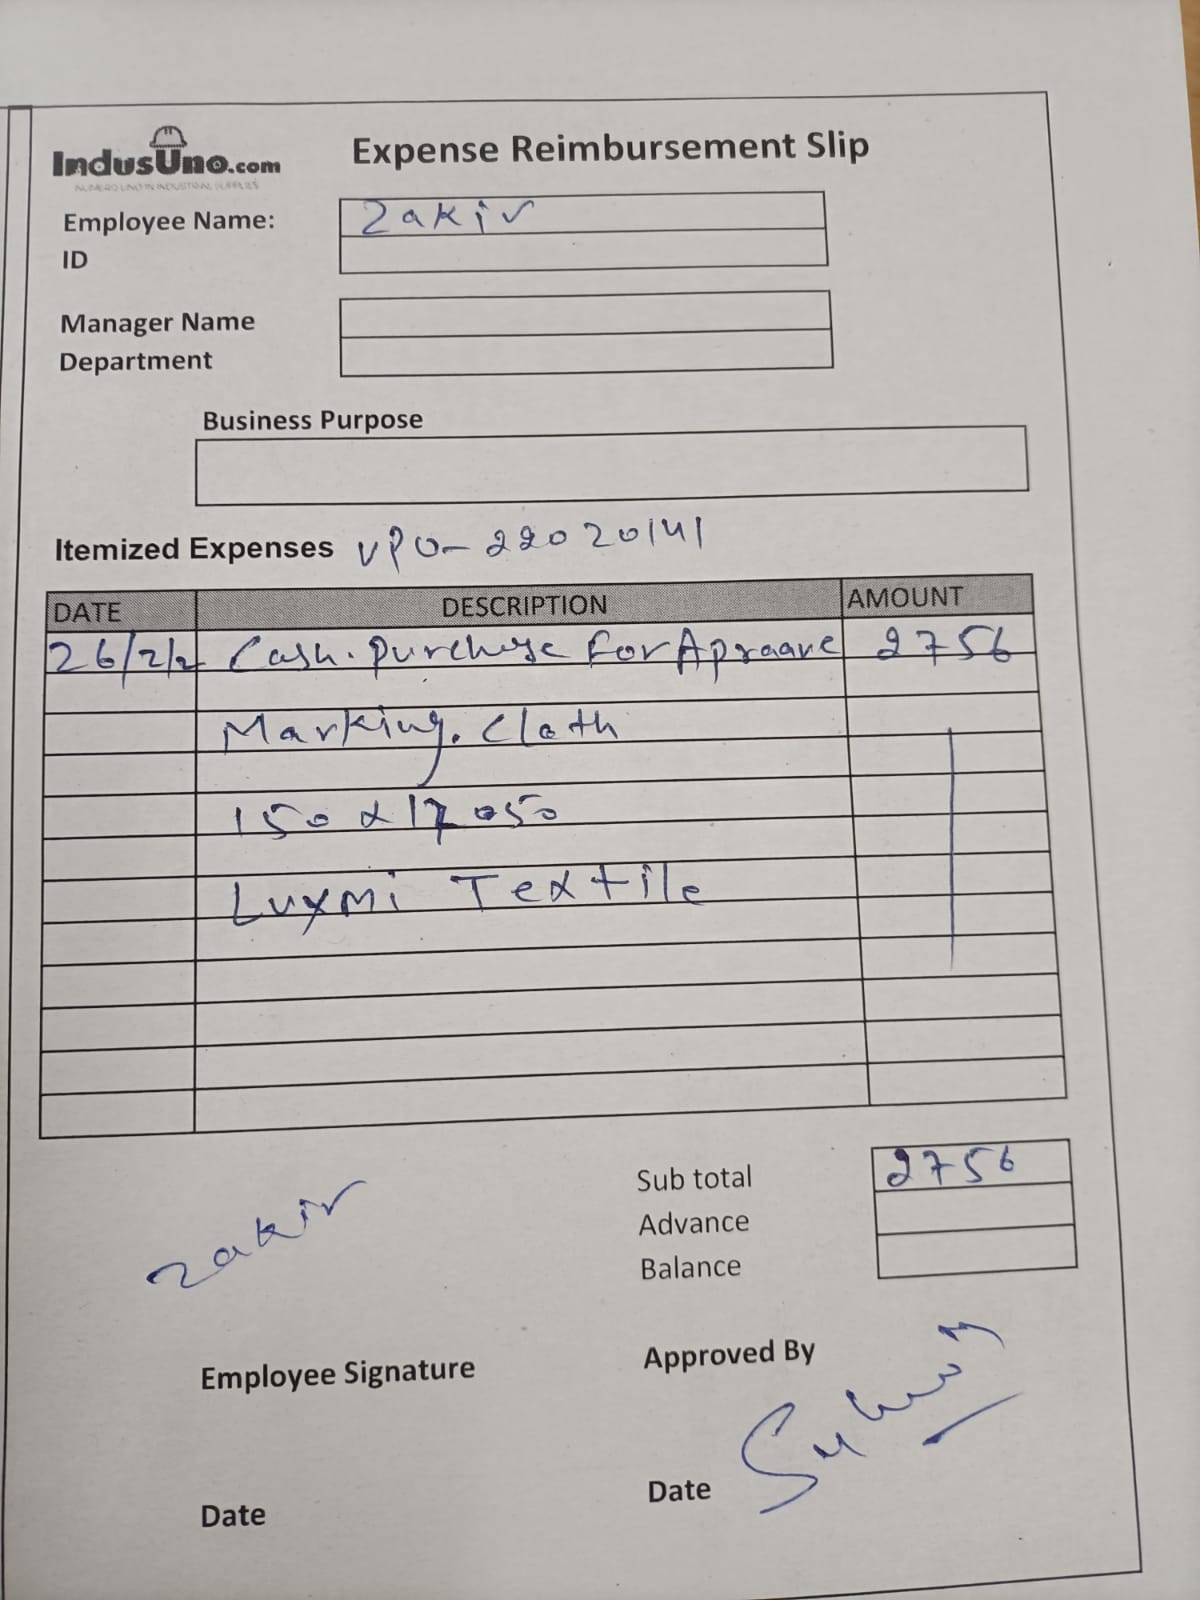 IndusUno.com
NUMERO UNO IN INDUSTRIAL SUPPLIES
Expense Reimbursement Slip
Employee Name: Zakir
ID
Manager Name
Department
Business Purpose
Itemized Expenses VPO-22020141
DATE DESCRIPTION AMOUNT
26/2/2 Cash. Purchase For Apraave 2756
Marking. Cloth
150 x 17.50
Luxmi Textile
Sub total 2756
Advance
Balance
Zakir
Employee Signature
Approved By
Date
Date